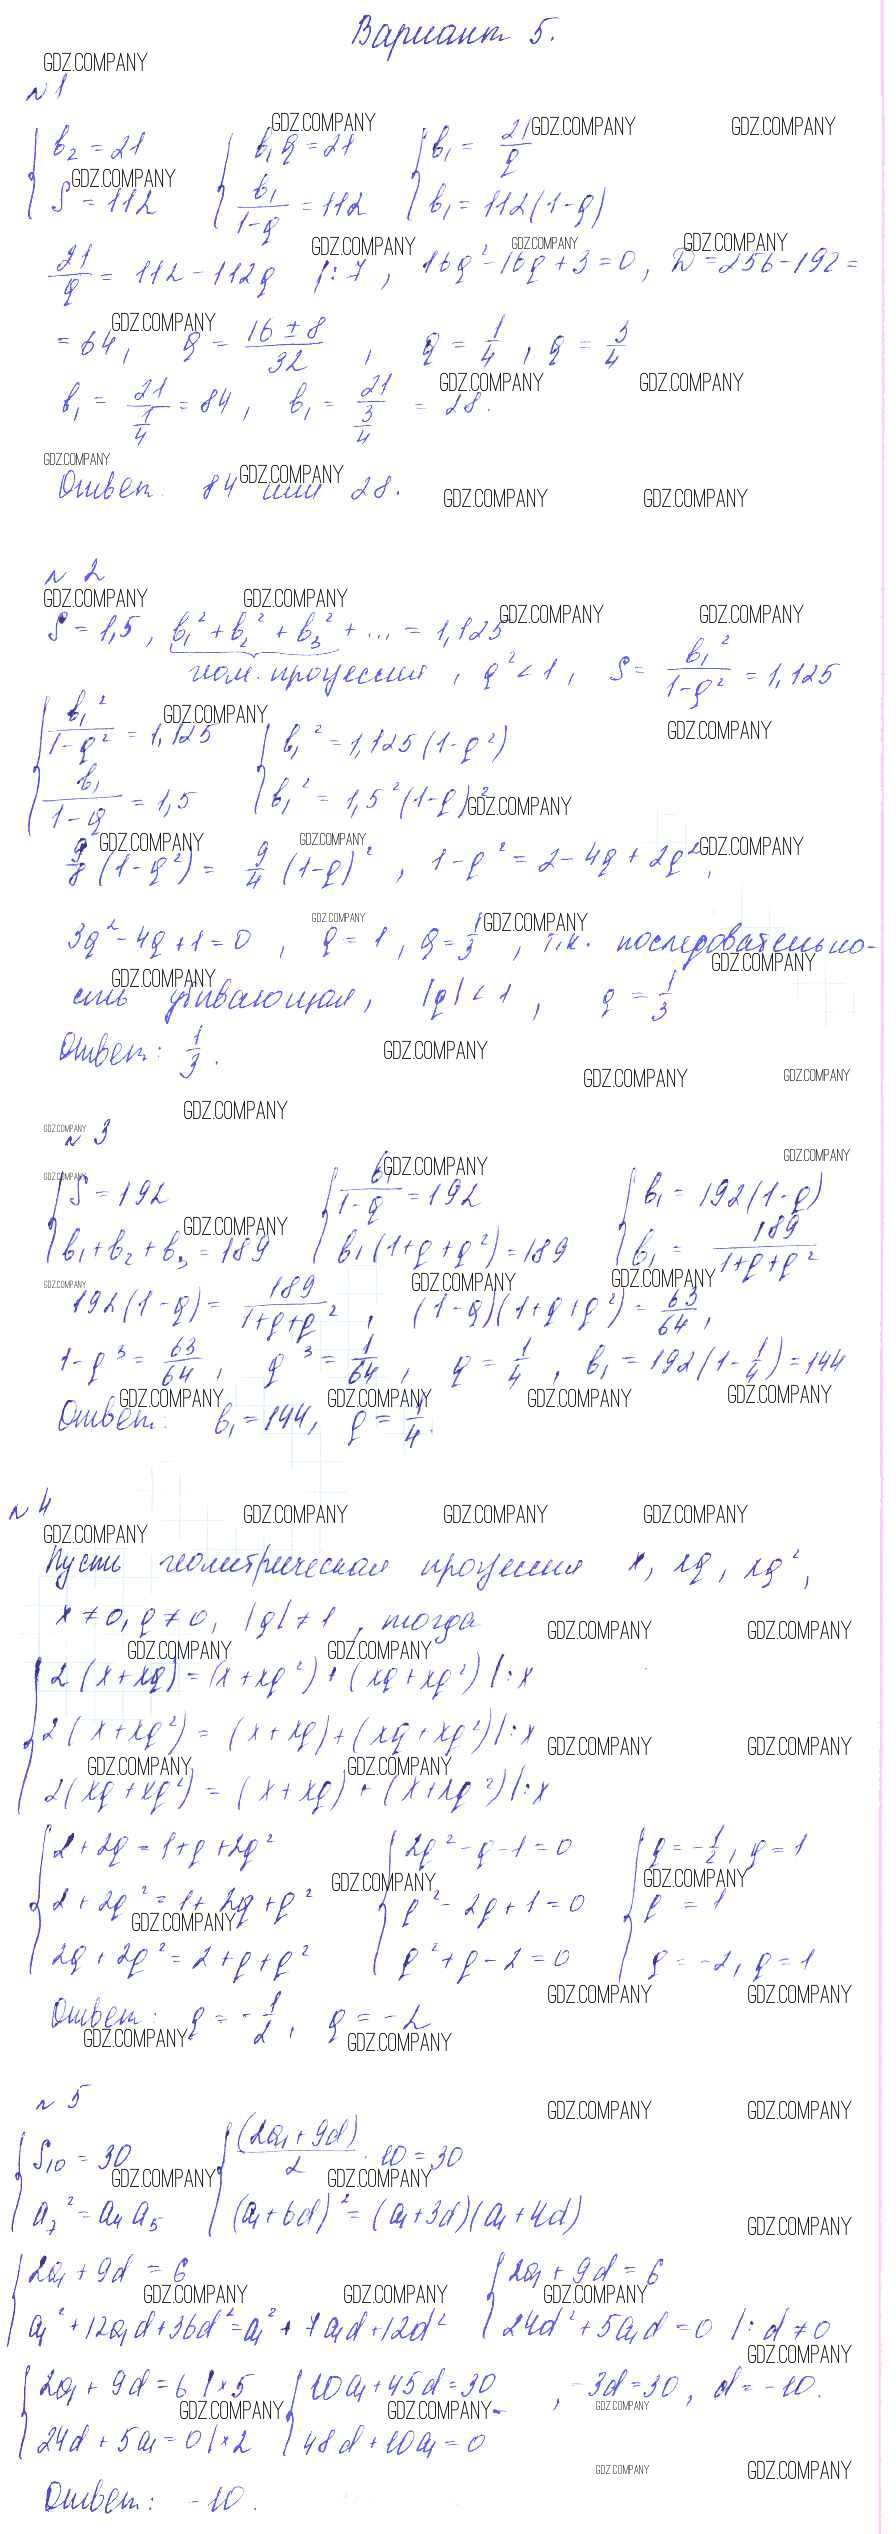 Вариант 5.
GDZ.COMPANY
№1
{ b₂ = 21 { b₁q = 21 { b₁ = 21/q
{ S = 112 { b₁/(1-q) = 112 { b₁ = 112(1-q)
21/q = 112 - 112q |:7, 16q² - 16q + 3 = 0, D = 256 - 192 =
= 64, q = (16 ± 8)/32, q = 1/4, q = 3/4
b₁ = 21/(1/4) = 84, b₁ = 21/(3/4) = 28.
Ответ: 84 или 28.
№2
S = 1,5, b₁² + b₂² + b₃² + ... = 1,125
геом. прогрессия, q² < 1, S = b₁²/(1-q²) = 1,125
{ b₁²/(1-q²) = 1,125 { b₁² = 1,125(1-q²)
{ b₁/(1-q) = 1,5 { b₁² = 1,5²(1-q)²
9/8 (1-q²) = 9/4 (1-q)², 1-q² = 2-4q+2q²,
3q² - 4q + 1 = 0, q = 1, q = 1/3, т.к. последовательно-
сть убывающая, |q| < 1, q = 1/3
Ответ: 1/3.
№3
{ S = 192 { b₁/(1-q) = 192 { b₁ = 192(1-q)
{ b₁ + b₂ + b₃ = 189 { b₁(1+q+q²) = 189 { b₁ = 189/(1+q+q²)
192(1-q) = 189/(1+q+q²), (1-q)(1+q+q²) = 63/64,
1-q³ = 63/64, q³ = 1/64, q = 1/4, b₁ = 192(1-1/4) = 144
Ответ: b₁ = 144, q = 1/4.
№4
Пусть геометрическая прогрессия x, xq, xq²,
x ≠ 0, q ≠ 0, |q| ≠ 1, тогда
{ 2(x+xq) = (x+xq²) + (xq+xq²) |:x
{ 2(x+xq²) = (x+xq) + (xq+xq²) |:x
{ 2(xq+xq²) = (x+xq) + (x+xq²) |:x
{ 2+2q = 1+q+2q² { 2q²-q-1=0 { q = -1/2, q = 1
{ 2+2q² = 1+2q+q² { q²-2q+1=0 { q = 1
{ 2q+2q² = 2+q+q² { q²+q-2=0 { q = -2, q = 1
Ответ: q = -1/2, q = -2
№5
{ S₁₀ = 30 { (2a₁+9d)/2 · 10 = 30
{ a₇² = a₄a₅ { (a₁+6d)² = (a₁+3d)(a₁+4d)
{ 2a₁+9d = 6 { 2a₁+9d = 6
{ a₁²+12a₁d+36d² = a₁²+7a₁d+12d² { 24d²+5a₁d = 0 |:d ≠ 0
{ 2a₁+9d = 6 |×5 { 10a₁+45d = 30 -, -3d = 30, d = -10.
{ 24d+5a₁ = 0 |×2 { 48d+10a₁ = 0
Ответ: -10.